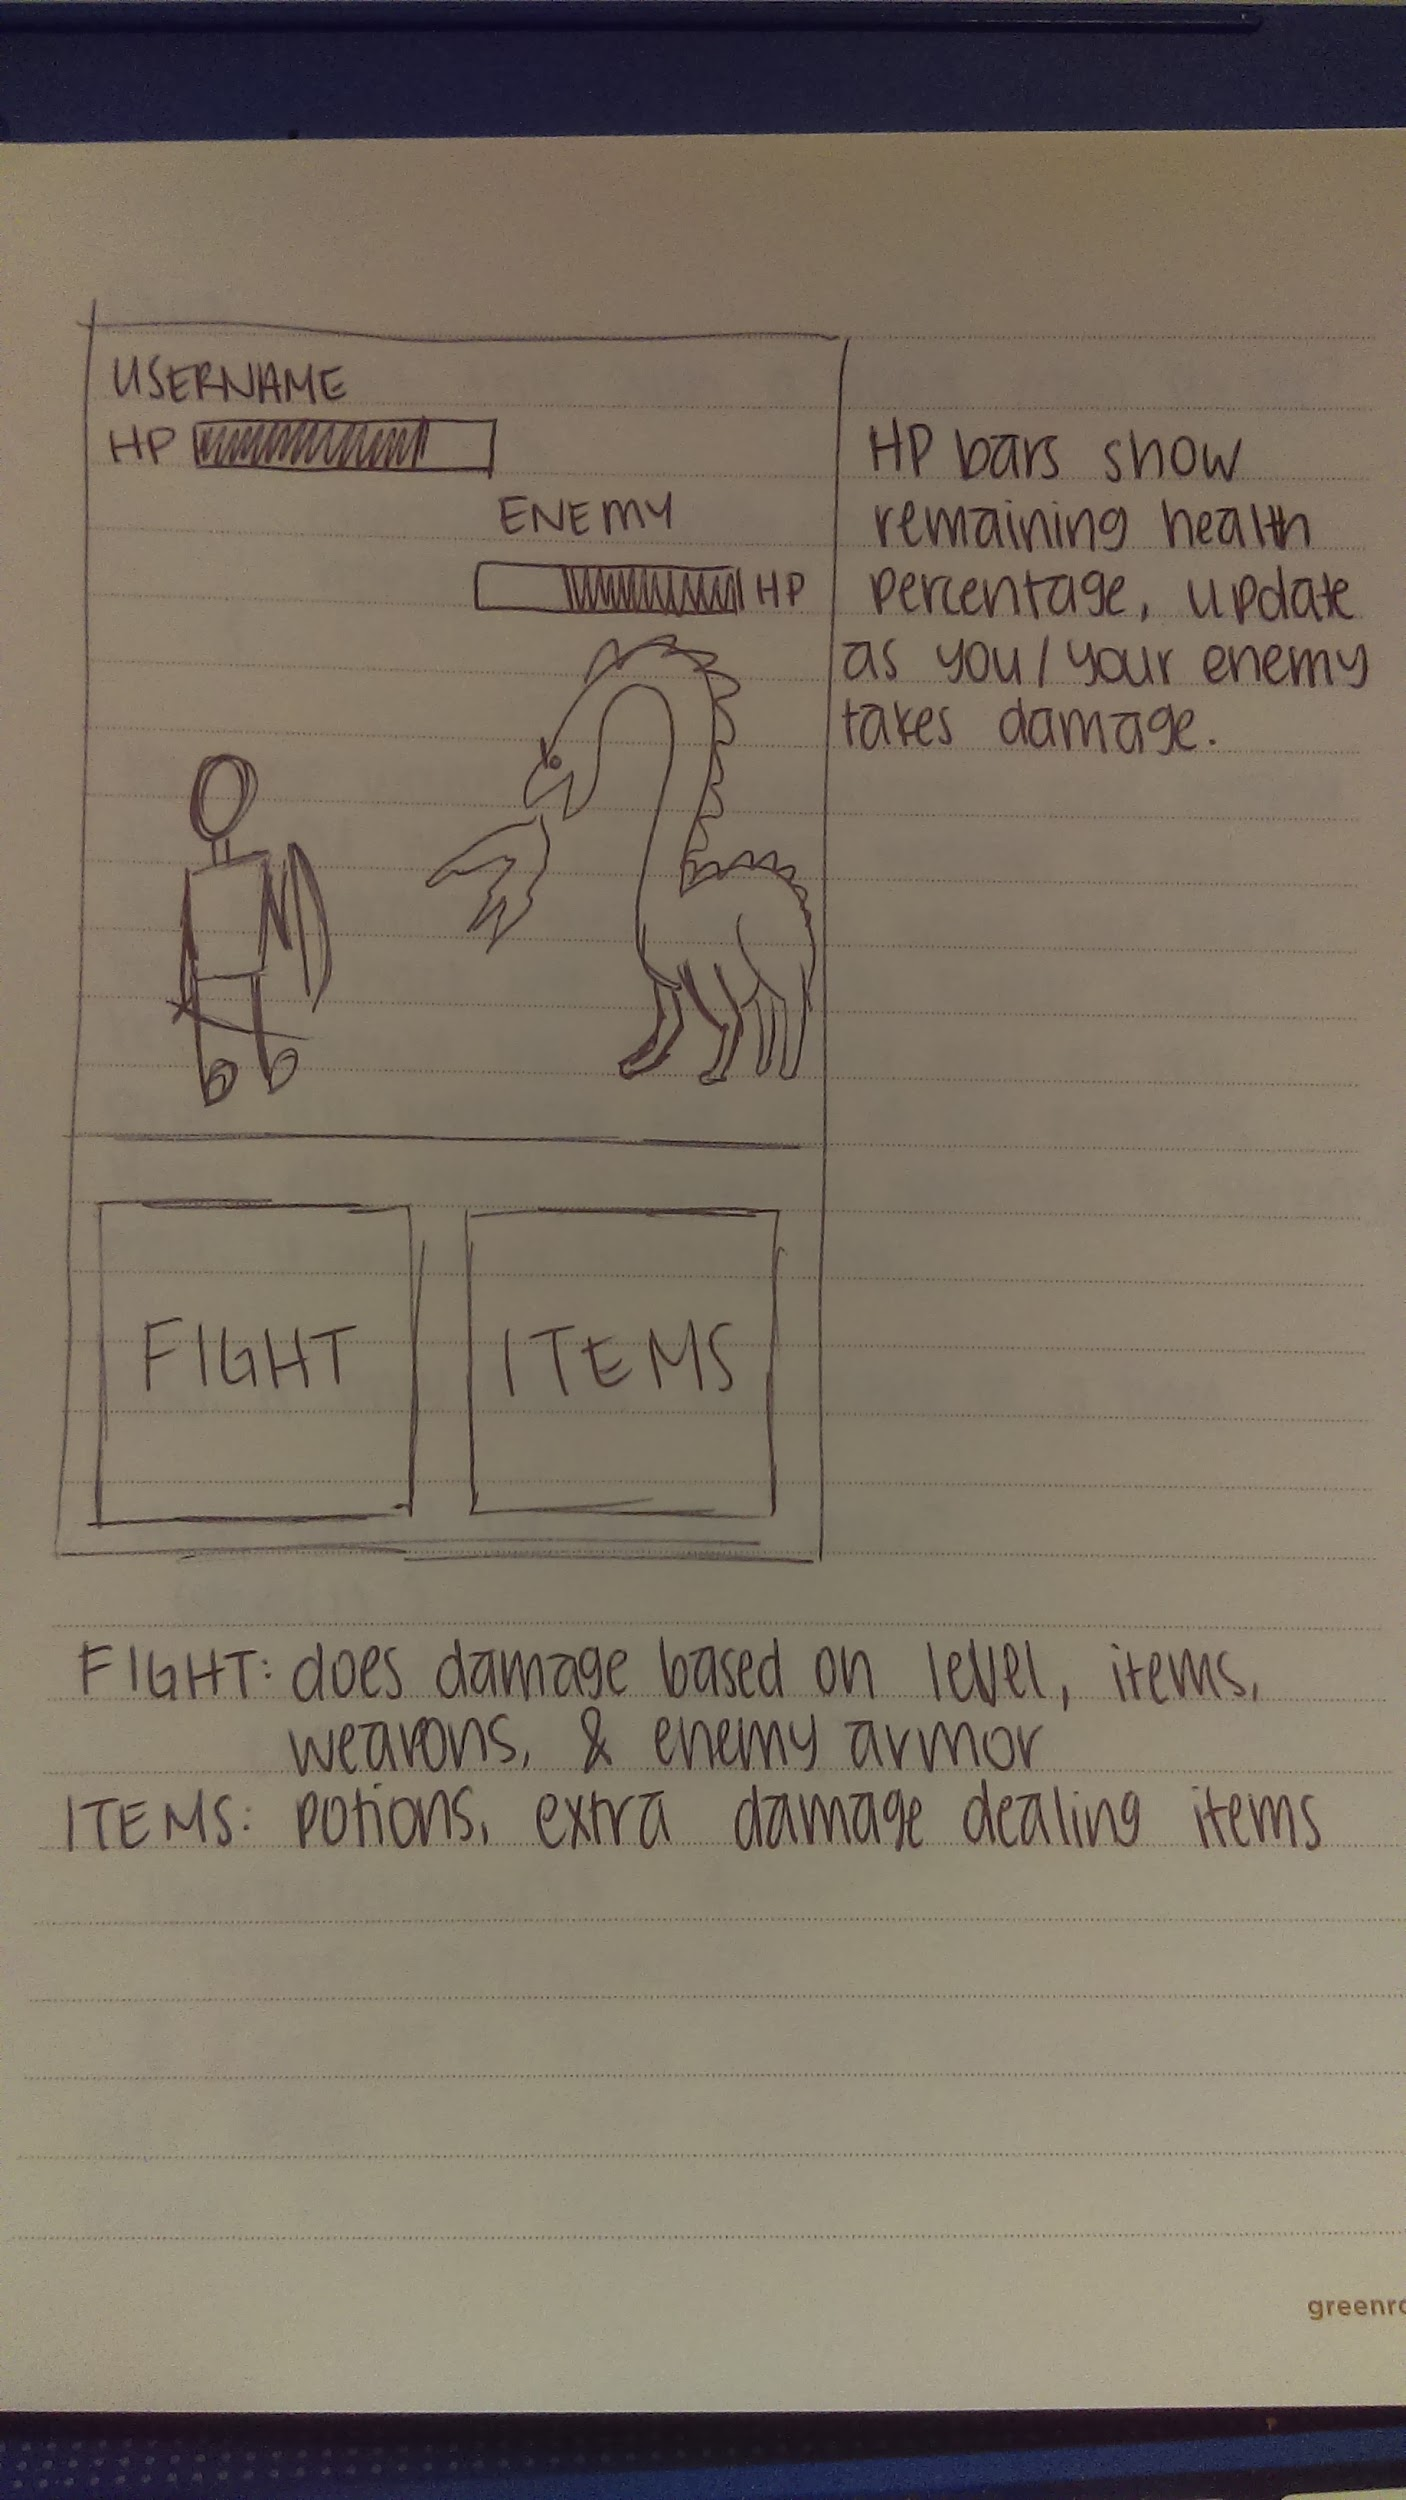 USERNAME
HP
ENEMY
HP
HP bars show
remaining health
percentage, update
as you/your enemy
takes damage.
FIGHT
ITEMS
FIGHT: does damage based on level, items,
weapons, & enemy armor
ITEMS: potions, extra damage dealing items